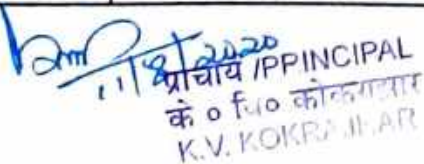 11/8/2020
प्राचार्य /PPINCIPAL
के० वि० कोकराझार
K.V. KOKRAJHAR